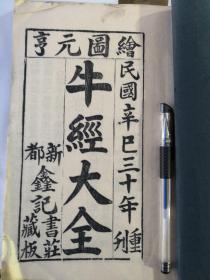 繪圖元亨
民國辛巳三十年重刊
牛經大全
新都鑫記書莊藏板